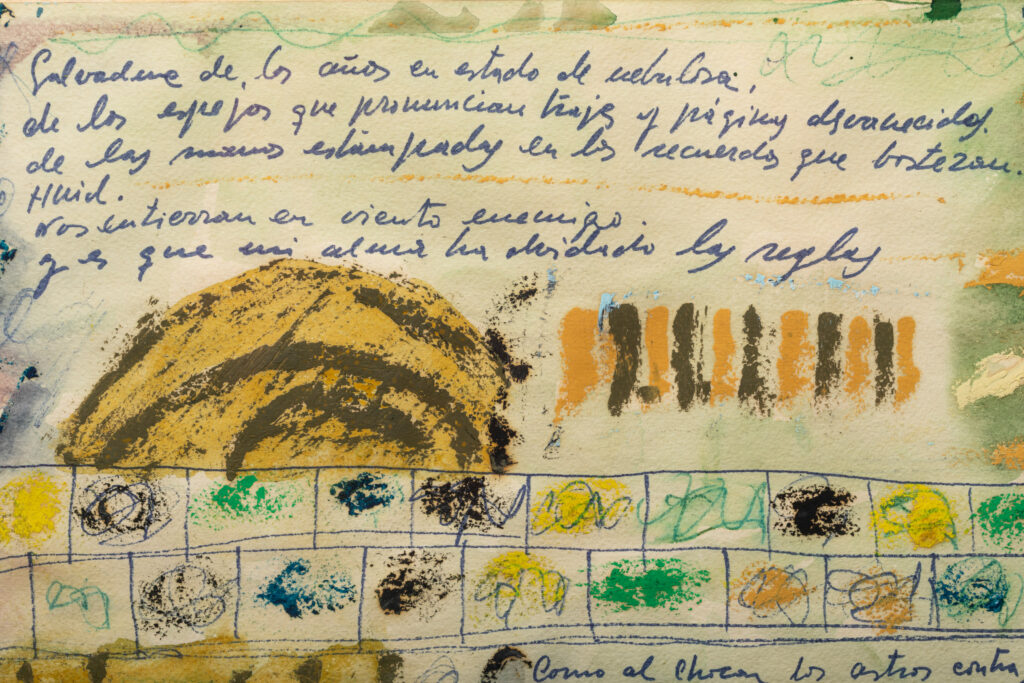 Salvadme de los años en estado de nebulosa,
de los espejos que pronuncian trajes y páginas desvanecidas.
de las manos estampadas en los recuerdos que bostezan.
Huid.
Nos entierran en viento enemigo.
y es que mi alma ha olvidado las reglas
Como al chocar los astros contra